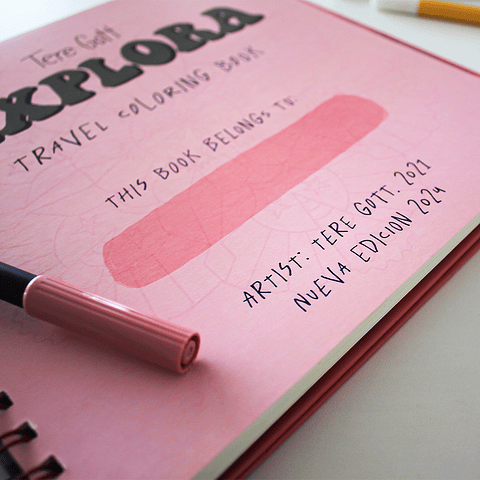 Tere Gott
EXPLORA
TRAVEL COLORING BOOK
THIS BOOK BELONGS TO:
ARTIST: TERE GOTT. 2021
NUEVA EDICION 2024